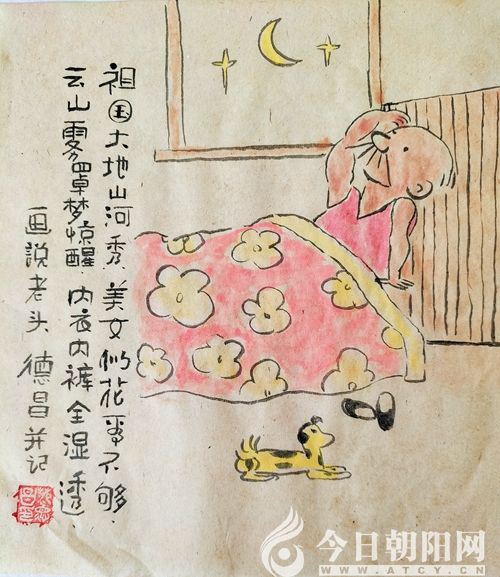 祖国大地山河秀 美女似花不够
云山雾罩梦惊醒 内衣内裤全湿透
画说老头 德昌并记
今日朝阳网
WWW.ATCY.CN